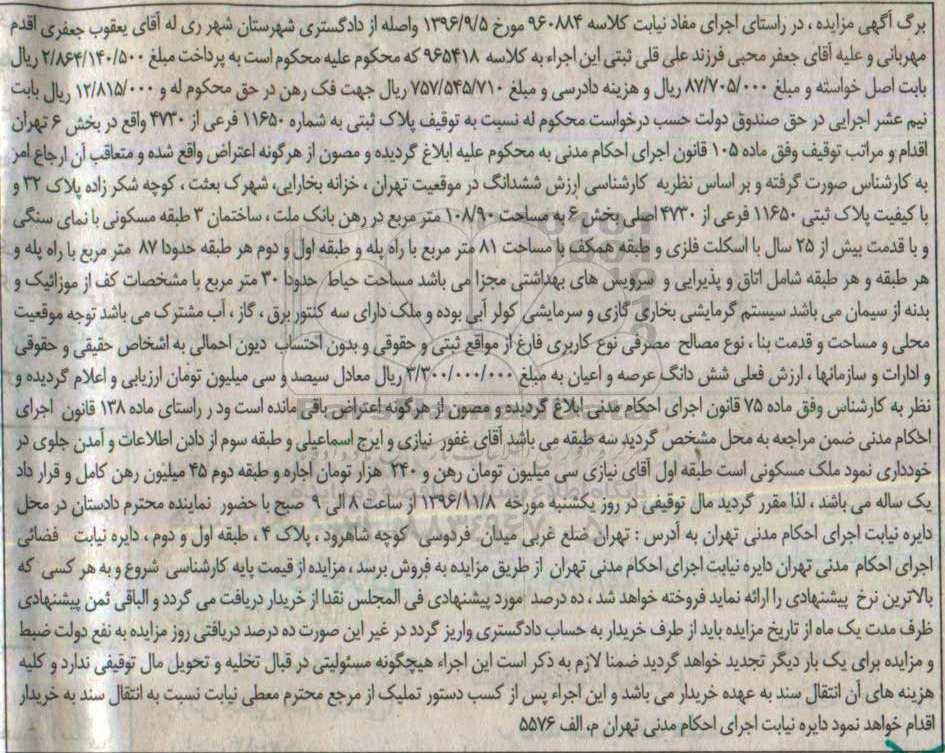 برگ آگهی مزایده ، در راستای اجرای مفاد نیابت کلاسه ۹۶۰۸۸۴ مورخ ۱۳۹۶/۹/۵ واصله از دادگستری شهرستان شهر ری له آقای یعقوب جعفری اقدم
مهربانی و علیه آقای جعفر محبی فرزند علی قلی ثبتی این اجراء به کلاسه ۹۶۵۴۱۸ که محکوم علیه محکوم است به پرداخت مبلغ ۲/۸۶۴/۱۴۰/۵۰۰ ریال
بابت اصل خواسته و مبلغ ۸۷/۷۰۵/۰۰۰ ریال و هزینه دادرسی و مبلغ ۷۵۷/۵۴۵/۷۱۰ ریال جهت فک رهن در حق محکوم له و ۱۲/۸۱۵/۰۰۰ ریال بابت
نیم عشر اجرایی در حق صندوق دولت حسب درخواست محکوم له نسبت به توقیف پلاک ثبتی به شماره ۱۱۶۵۰ فرعی از ۴۷۳۰ واقع در بخش ۶ تهران
اقدام و مراتب توقیف وفق ماده ۱۰۵ قانون اجرای احکام مدنی به محکوم علیه ابلاغ گردیده و مصون از هرگونه اعتراض واقع شده و متعاقب آن ارجاع امر
به کارشناس صورت گرفته و بر اساس نظریه کارشناسی ارزش ششدانگ در موقعیت تهران ، خزانه بخارایی، شهرک بعثت ، کوچه شکر زاده پلاک ۳۲ و
با کیفیت پلاک ثبتی ۱۱۶۵۰ فرعی از ۴۷۳۰ اصلی بخش ۶ به مساحت ۱۰۸/۹۰ متر مربع در رهن بانک ملت ، ساختمان ۳ طبقه مسکونی با نمای سنگی
و با قدمت بیش از ۲۵ سال با اسکلت فلزی و طبقه همکف با مساحت ۸۱ متر مربع با راه پله و طبقه اول و دوم هر طبقه حدودا ۸۷ متر مربع با راه پله و
هر طبقه و هر طبقه شامل اتاق و پذیرایی و سرویش های بهداشتی مجزا می باشد مساحت حیاط حدودا ۳۰ متر مربع با مشخصات کف از موزائیک و
بدنه از سیمان می باشد سیستم گرمایشی بخاری گازی و سرمایشی کولر آبی بوده و ملک دارای سه کنتور برق ، گاز ، آب مشترک می باشد توجه موقعیت
محلی و مساحت و قدمت بنا ، نوع مصالح مصرفی نوع کاربری فارغ از مواقع ثبتی و حقوقی و بدون احتساب دیون احمالی به اشخاص حقیقی و حقوقی
و ادارات و سازمانها ، ارزش فعلی شش دانگ عرصه و اعیان به مبلغ ۳/۳۰۰/۰۰۰/۰۰۰ ریال معادل سیصد و سی میلیون تومان ارزیابی و اعلام گردیده و
نظر به کارشناس وفق ماده ۷۵ قانون اجرای احکام مدنی ابلاغ گردیده و مصون از هرگونه اعتراض باقی مانده است ود ر راستای ماده ۱۳۸ قانون اجرای
احکام مدنی ضمن مراجعه به محل مشخص گردید سه طبقه می باشد آقای غفور نیازی و ایرج اسماعیلی و طبقه سوم از دادن اطلاعات و آمدن جلوی در
خودداری نمود ملک مسکونی است طبقه اول آقای نیازی سی میلیون تومان رهن و ۲۴۰ هزار تومان اجاره و طبقه دوم ۴۵ میلیون رهن کامل و قرار داد
یک ساله می باشد ، لذا مقرر گردید مال توقیفی در روز یکشنبه مورخه ۱۳۹۶/۱۱/۸ از ساعت ۸ الی ۹ صبح با حضور نماینده محترم دادستان در محل
دایره نیابت اجرای احکام مدنی تهران به آدرس : تهران ضلع غربی میدان فردوسی کوچه شاهرود ، پلاک ۴ ، طبقه اول و دوم ، دایره نیابت قضائی
اجرای احکام مدنی تهران دایره نیابت اجرای احکام مدنی تهران از طریق مزایده به فروش برسد ، مزایده از قیمت پایه کارشناسی شروع و به هر کسی که
بالاترین نرخ پیشنهادی را ارائه نماید فروخته خواهد شد ، ده درصد مورد پیشنهادی فی المجلس نقدا از خریدار دریافت می گردد و الباقی ثمن پیشنهادی
ظرف مدت یک ماه از تاریخ مزایده باید از طرف خریدار به حساب دادگستری واریز گردد در غیر این صورت ده درصد دریافتی روز مزایده به نفع دولت ضبط
و مزایده برای یک بار دیگر تجدید خواهد گردید ضمنا لازم به ذکر است این اجراء هیچگونه مسئولیتی در قبال تخلیه و تحویل مال توقیفی ندارد و کلیه
هزینه های آن انتقال سند به عهده خریدار می باشد و این اجراء پس از کسب دستور تملیک از مرجع محترم معطی نیابت نسبت به انتقال سند به خریدار
اقدام خواهد نمود دایره نیابت اجرای احکام مدنی تهران م، الف ۵۵۷۶